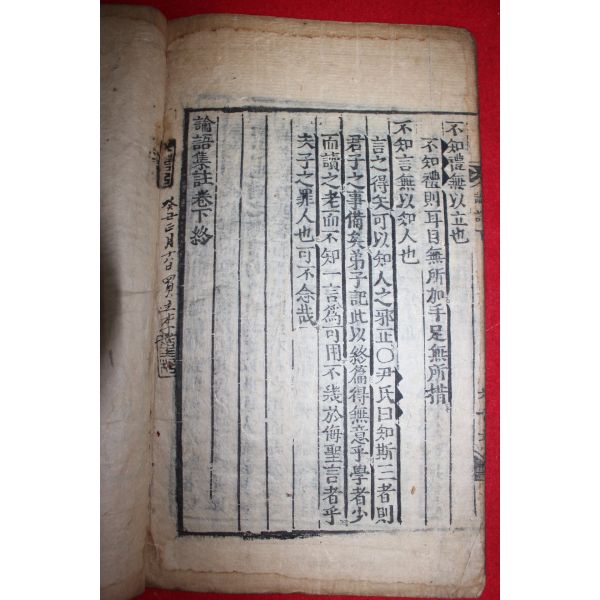 不知禮無以立也
不知禮則耳目無所加手足無所措
不知言無以知人也
言之得失可以知人之邪正○尹氏曰知斯三者則
君子之事備矣弟子記此以終篇得無意乎學者少
而讀之老而不知一言爲可用不幾於侮聖言者乎
夫子之罪人也可不念哉
論語集註卷下終
癸丑正月十六日買